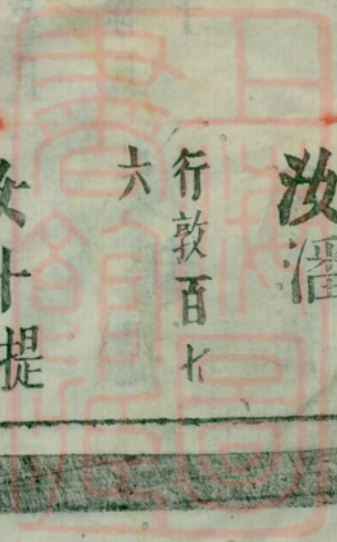 汝潘
行敦百七
六
汝十提